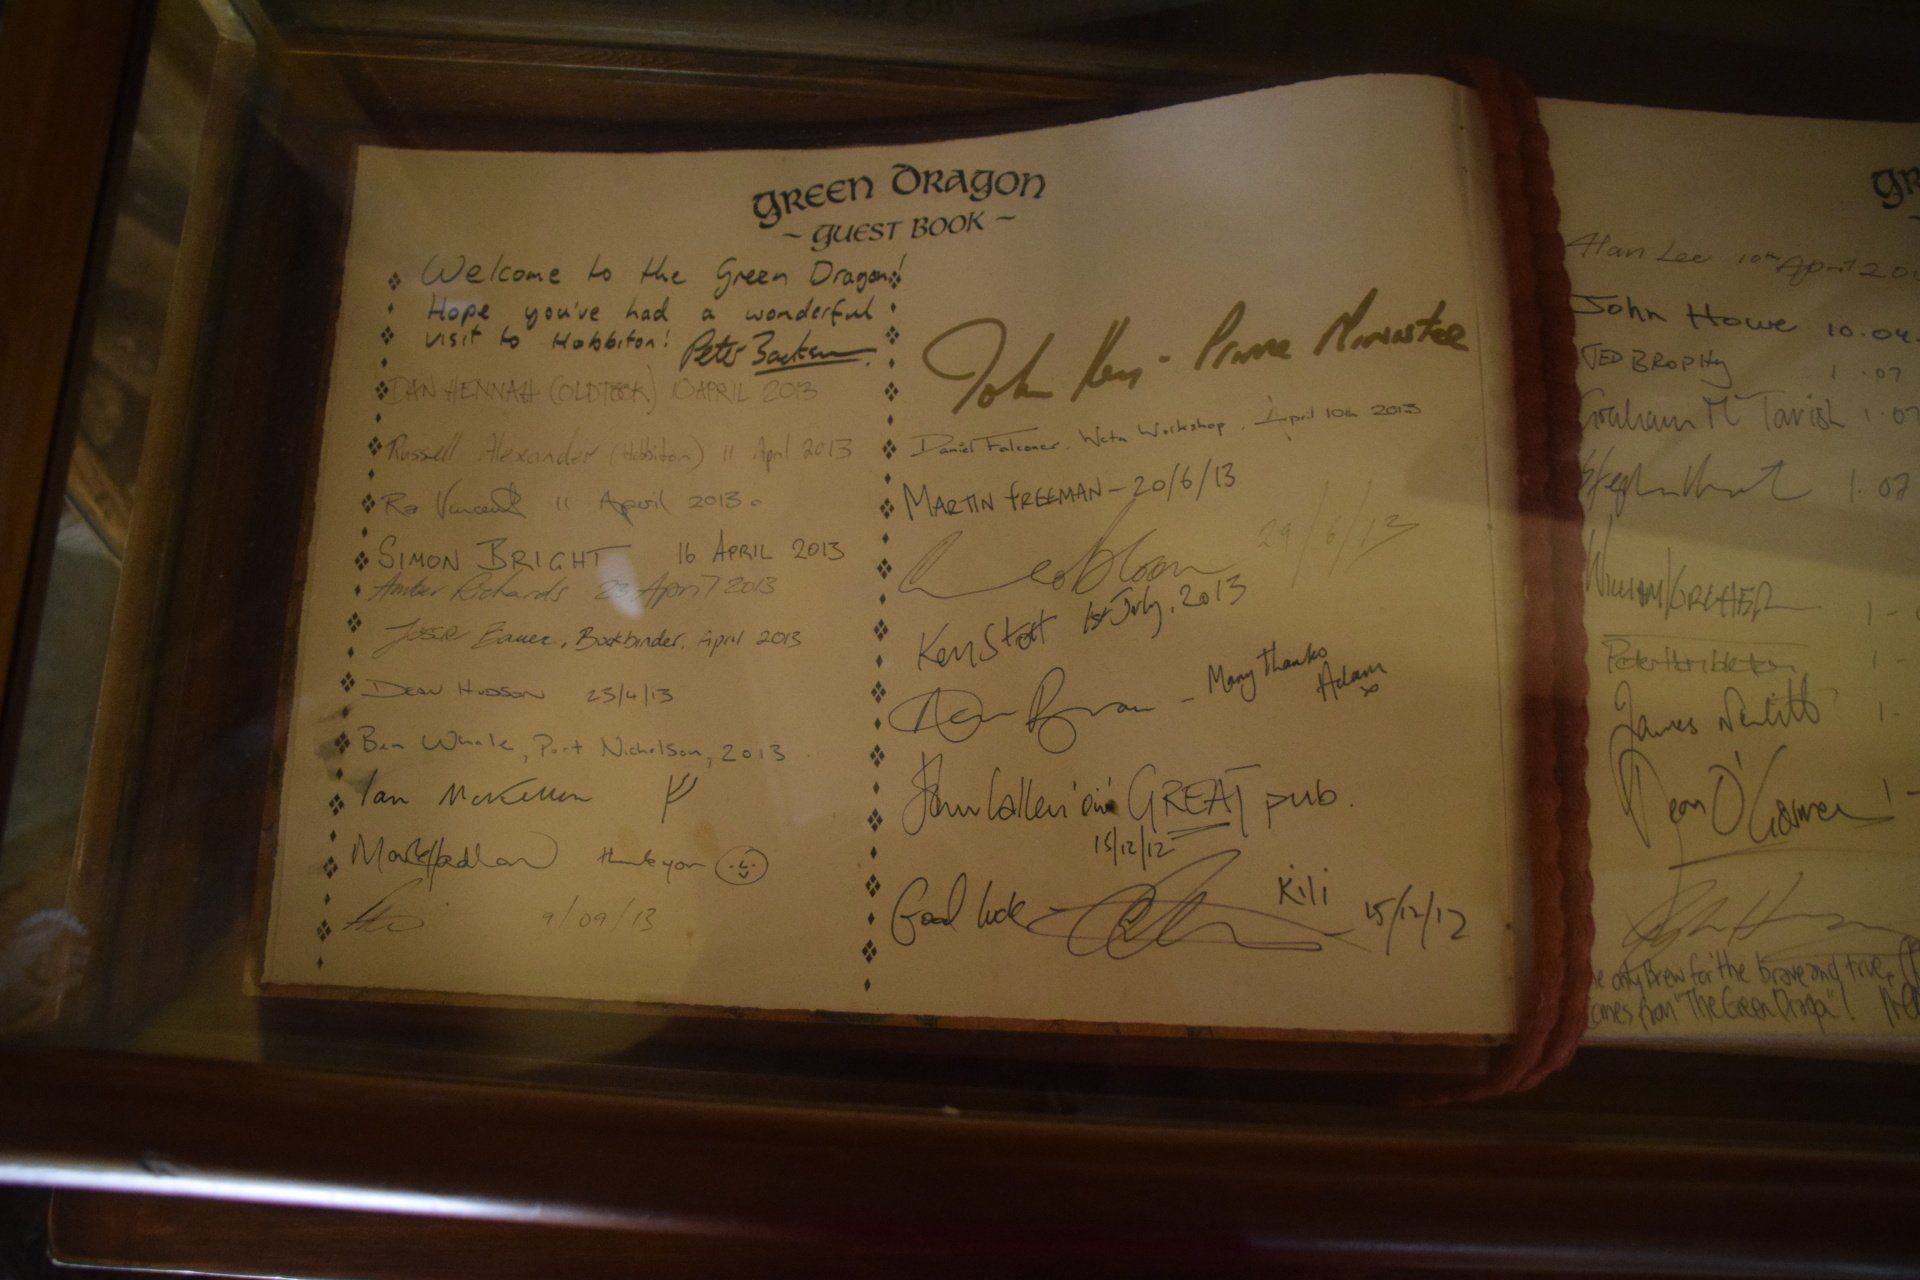 GREEN DRAGON
~ GUEST BOOK ~
Welcome to the Green Dragon!
Hope you've had a wonderful
visit to Hobbiton! Peter
DAN HENNAH (OLDTOOK) 10 APRIL 2013
Russell Alexander (Hobbiton) 11 April 2013
Ra Vincent 11 April 2013
SIMON BRIGHT 16 APRIL 2013
Amber Richards 23 April 2013
Bookbinder, April 2013
Dean Hudson 23/4/13
Ben Whale, Port Nicholson, 2013
Ian McKellen
Mark Hadlow thank you
9/09/13
John Key - Prime Minister
Daniel Falconer, Weta Workshop, April 10th 2013
MARTIN FREEMAN - 20/6/13
29/6/13
Ken Stott 1st July, 2013
Adam Brown - Many thanks
Adam
x
John Callen GREAT pub.
15/12/12
Good luck Kili 15/12/12
GR
Alan Lee 10th April 20
John Howe 10.04.
JED BROPHY 1.07
Graham McTavish 1.07
Stephen Hunt 1.07
WILLIAM KIRCHER 1-
1-
James Nesbitt 1.
Dean O'Gorman 1-
e only Brew for the brave and true,
comes from "The Green Dragon"!